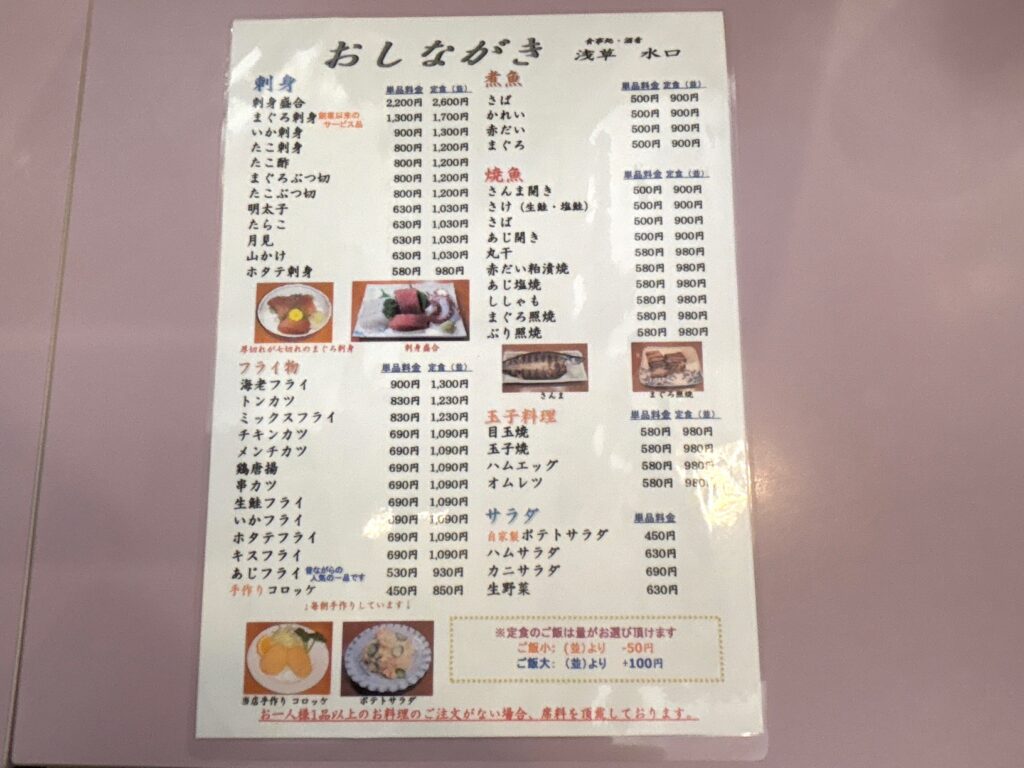 おしながき
食事処・酒肴
浅草 水口
刺身 単品料金 定食(並)
刺身盛合 2,200円 2,600円
まぐろ刺身 創業以来のサービス品 1,300円 1,700円
いか刺身 900円 1,300円
たこ刺身 800円 1,200円
たこ酢 800円 1,200円
まぐろぶつ切 800円 1,200円
たこぶつ切 800円 1,200円
明太子 630円 1,030円
たらこ 630円 1,030円
月見 630円 1,030円
山かけ 630円 1,030円
ホタテ刺身 580円 980円
厚切れが七切れのまぐろ刺身
刺身盛合
フライ物 単品料金 定食(並)
海老フライ 900円 1,300円
トンカツ 830円 1,230円
ミックスフライ 830円 1,230円
チキンカツ 690円 1,090円
メンチカツ 690円 1,090円
鶏唐揚 690円 1,090円
串カツ 690円 1,090円
生鮭フライ 690円 1,090円
いかフライ 690円 1,090円
ホタテフライ 690円 1,090円
キスフライ 690円 1,090円
あじフライ 昔ながらの人気の一品です 530円 930円
手作りコロッケ 450円 850円
↓毎朝手作りしています↓
当店手作り コロッケ
ポテトサラダ
煮魚 単品料金 定食(並)
さば 500円 900円
かれい 500円 900円
赤だい 500円 900円
まぐろ 500円 900円
焼魚 単品料金 定食(並)
さんま開き 500円 900円
さけ(生鮭・塩鮭) 500円 900円
さば 500円 900円
あじ開き 500円 900円
丸干 580円 980円
赤だい粕漬焼 580円 980円
あじ塩焼 580円 980円
ししゃも 580円 980円
まぐろ照焼 580円 980円
ぶり照焼 580円 980円
さんま
まぐろ照焼
玉子料理 単品料金 定食(並)
目玉焼 580円 980円
玉子焼 580円 980円
ハムエッグ 580円 980円
オムレツ 580円 980円
サラダ 単品料金
自家製ポテトサラダ 450円
ハムサラダ 630円
カニサラダ 690円
生野菜 630円
※定食のご飯は量がお選び頂けます
ご飯小:(並)より -50円
ご飯大:(並)より +100円
お一人様1品以上のお料理のご注文がない場合、席料を頂戴しております。